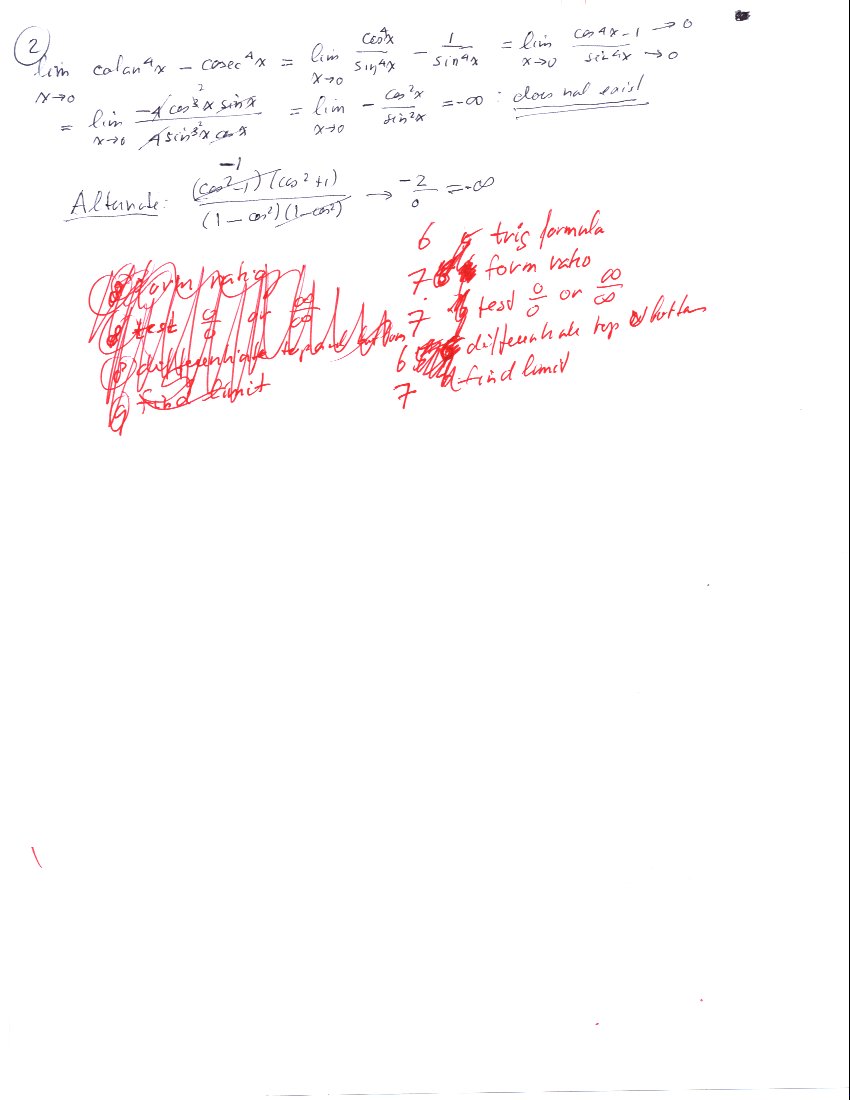 2
lim x→0 cotan⁴x − cosec⁴x = lim x→0 cos⁴x/sin⁴x − 1/sin⁴x = lim x→0 cos⁴x−1 → 0 / sin⁴x → 0
= lim x→0 −4 cos³x sin x / 4 sin³x cos x = lim x→0 − cos²x/sin²x = −∞ : does not exist
Alternate: (cos²−1)(cos²+1) / (1−cos²)(1−cos²) → −2/0 = −∞
−1
6 trig formula
7 form ratio
7 test 0/0 or ∞/∞
6 differentiate top & bottom
7 find limit
form ratio
test 0/0 or ∞/∞
differentiate top and bottom
find limit